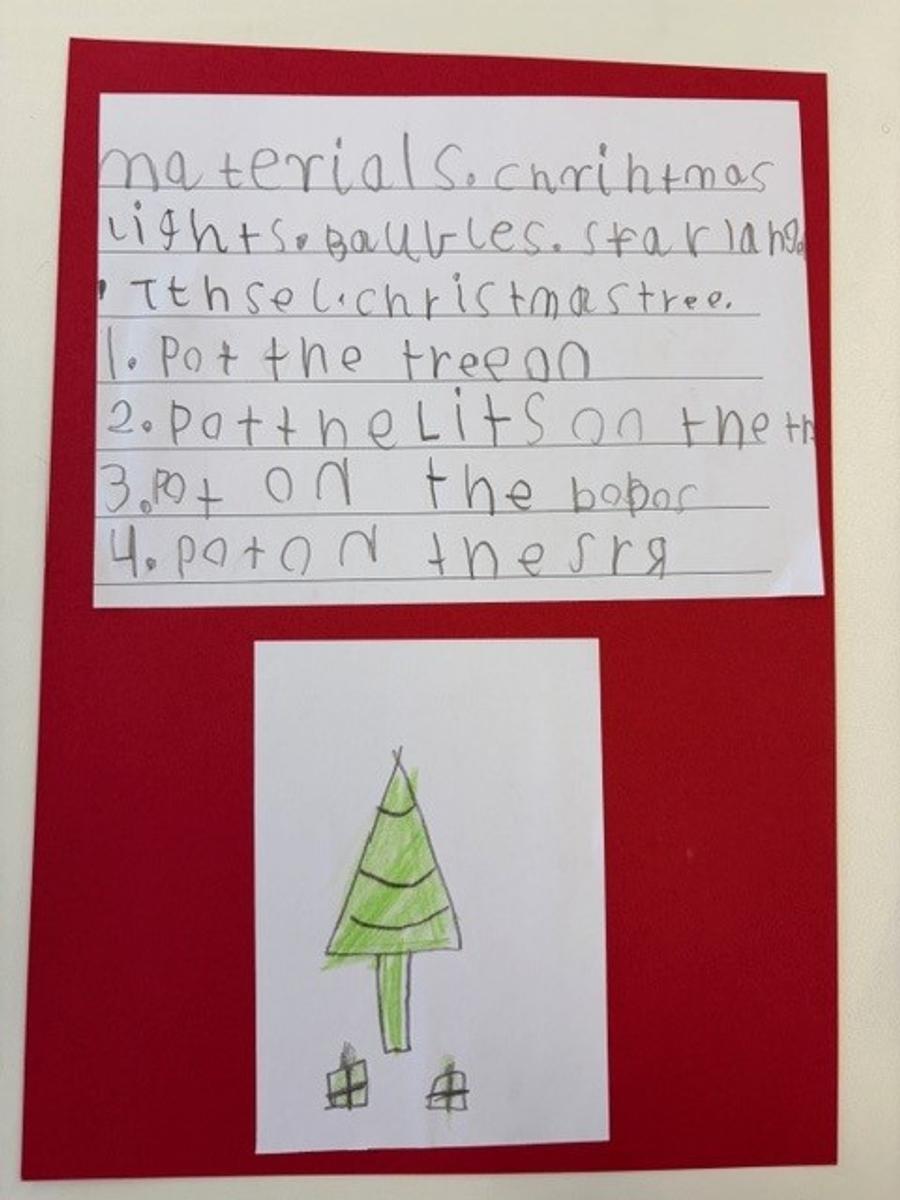 materials. chrihtmas
lights. Baubles. star lang
. Tthsel. christmas tree.
1. Pot the tree on
2. pot the Lits on the tr
3. Pot on the bobos
4. pot on the sra